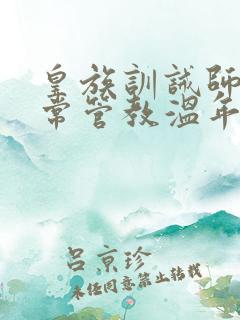 皇族訓誡師
常管教溫年
呂京珍
未经同意禁止转载